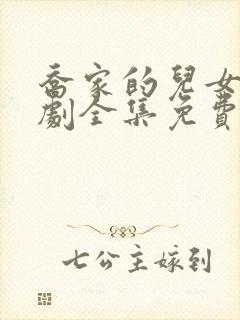 喬家的兒女
劇全集免費
七公主嫁到